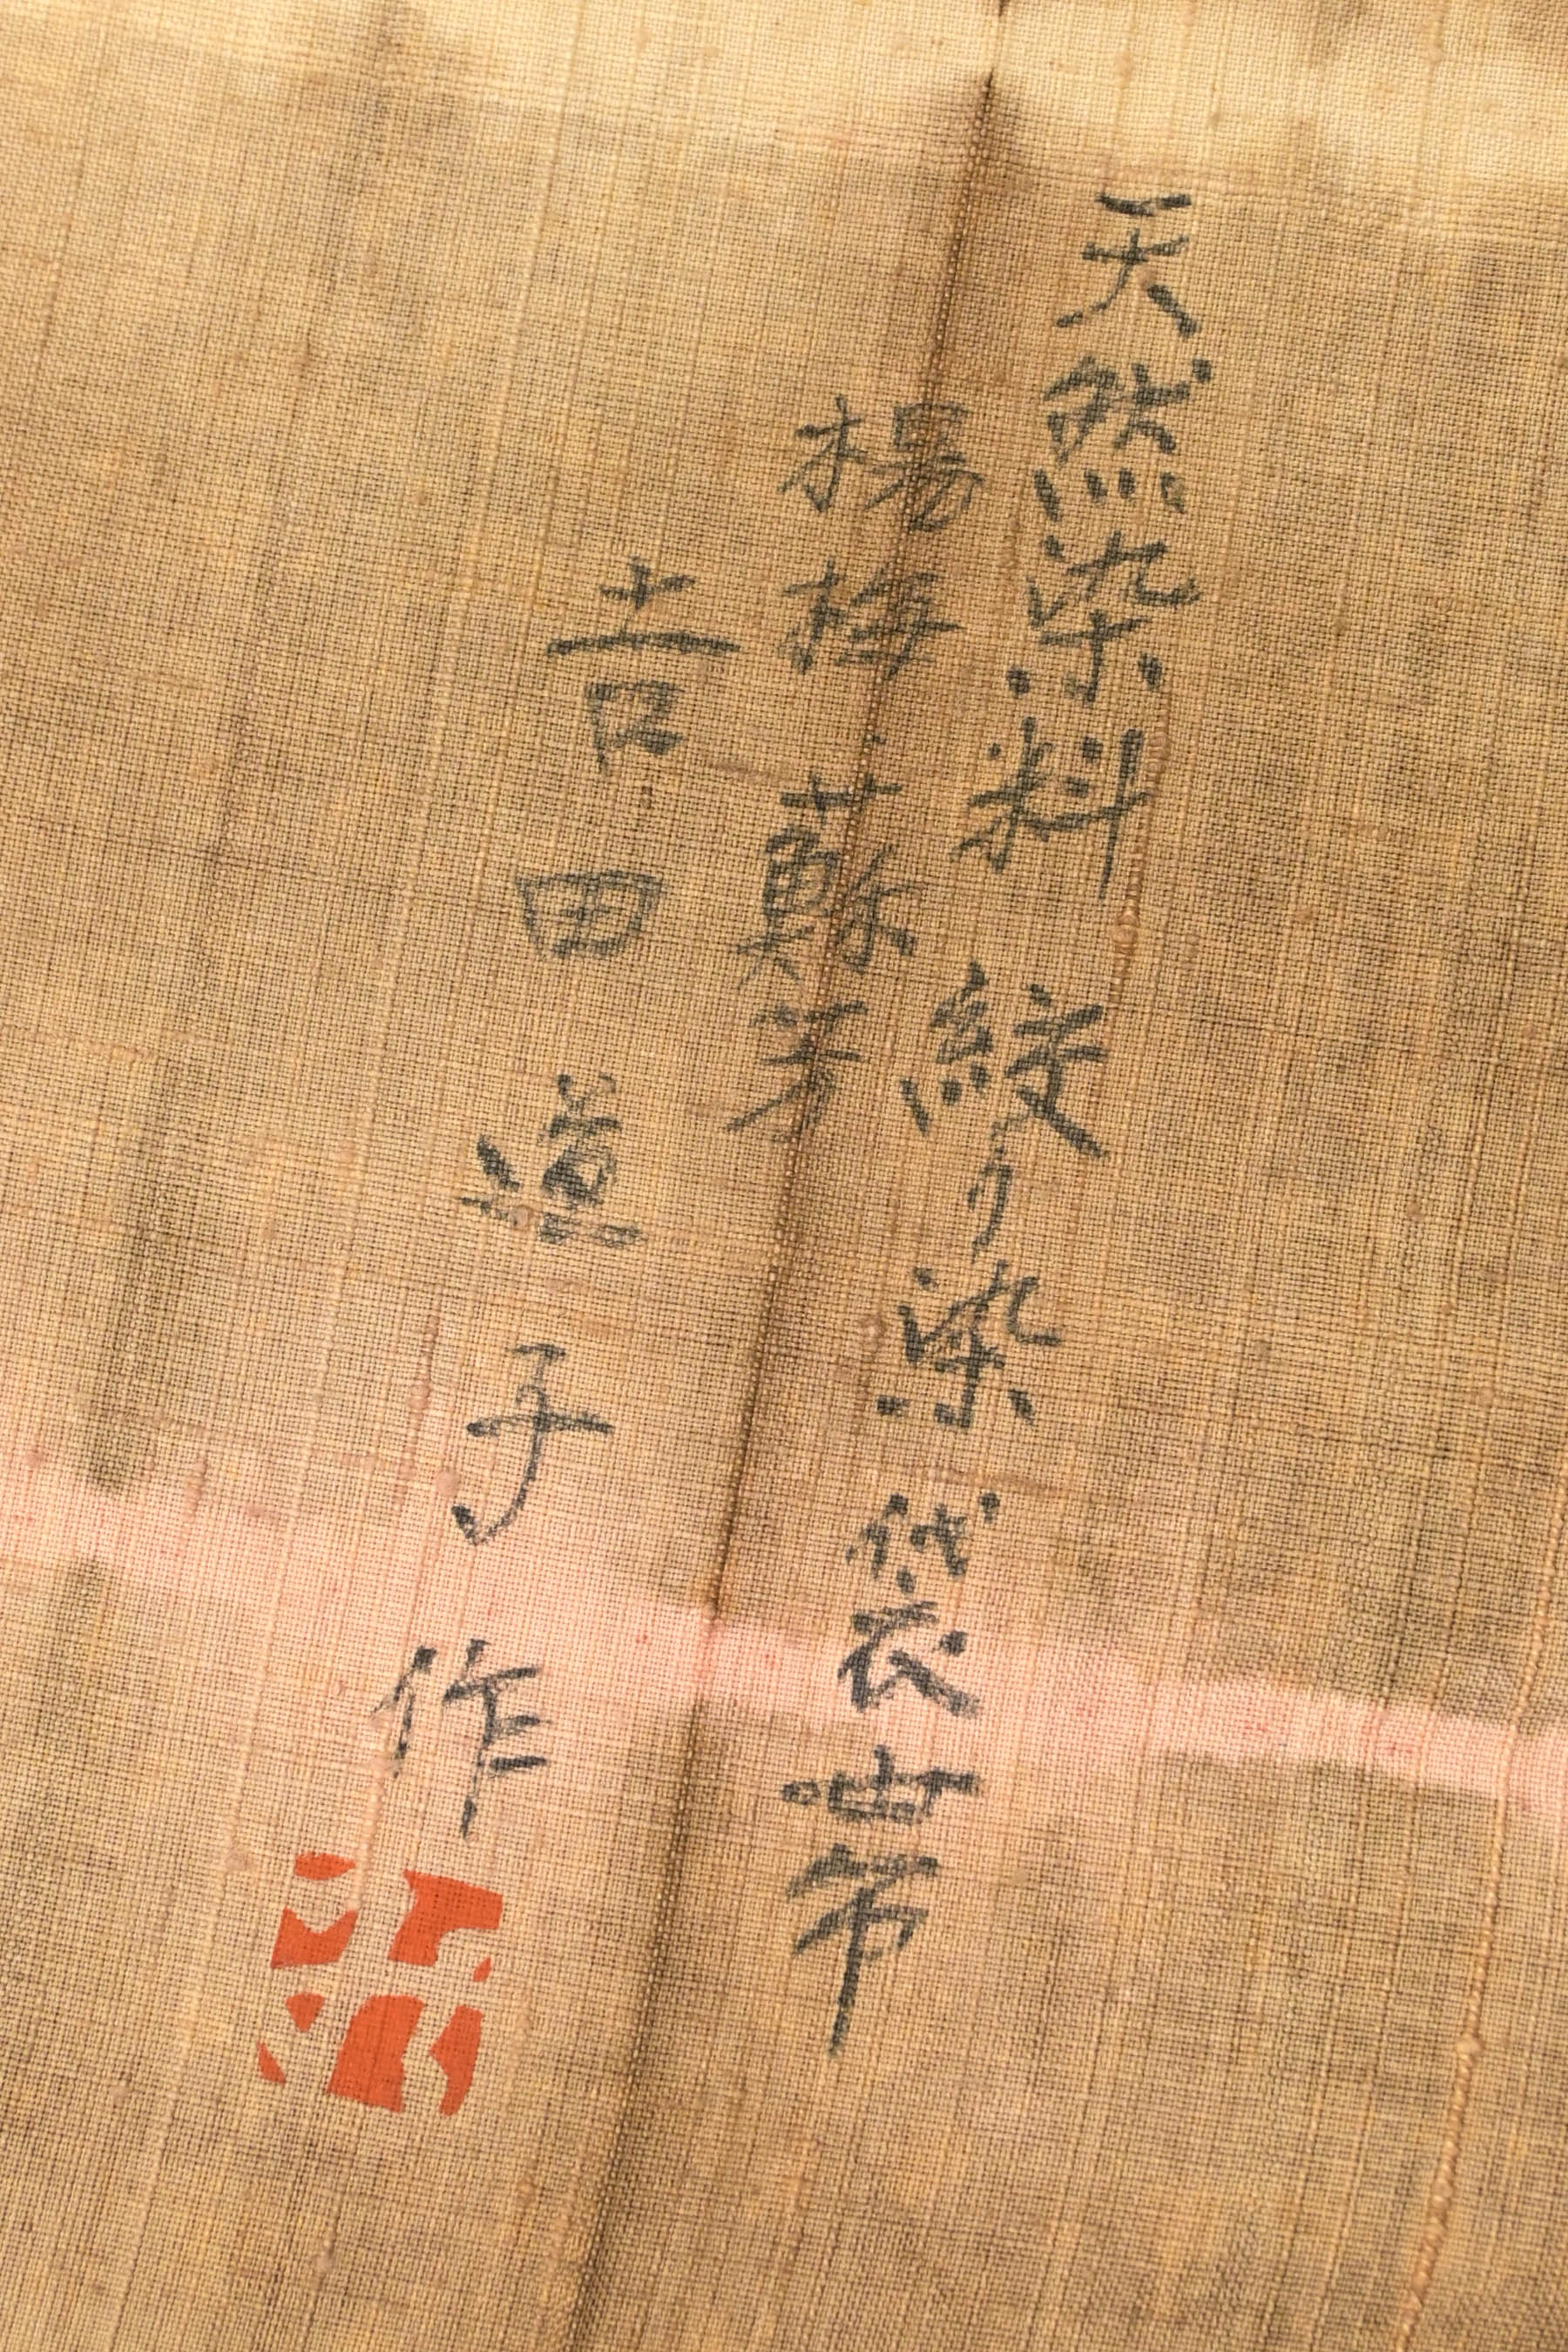 天然染料 絞り染 袋帯
楊梅 蘇芳
吉田 道子 作